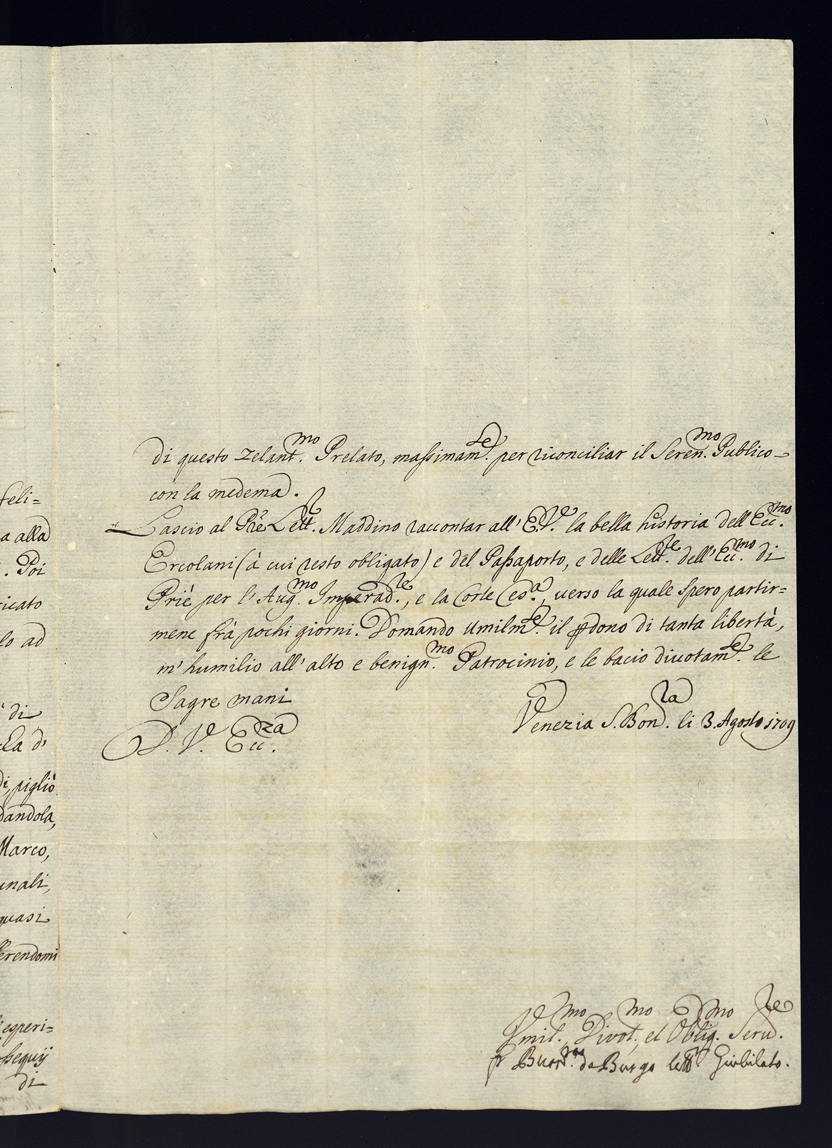 feli=
a alla
. Poi
ricato
lo ad
di
la d'
di, pigliò
dandola,
Marco,
unali,
quasi
ferendomi
l'esperi=
ssequij
di
di questo zelant.mo Prelato, massimam.te per riconciliar il Seren.mo Publico
con la medema.
Lascio al Pre Lett. Maddino raccontar all'E.V. la bella historia dell'Ecc.mo
Ercolani (à cui resto obligato) e del Passaporto, e delle Lett.e dell'Ecc.mo di
Prié per l'Aug.mo Imperad.le, e la Corte Ces.a, verso la quale spero partir=
mene frà pochi giorni. Domando umilm.te il pdono di tanta libertà,
m'humilio all'alto e benign.mo Patrocinio, e le bacio divotam.te le
Sagre mani
D. V. Ecc.za
Venezia S. Bon.ra li 3. Agosto 1709
Umil.mo Divot.mo, et Oblig.mo Serv.re
da Burgo Giubilato.